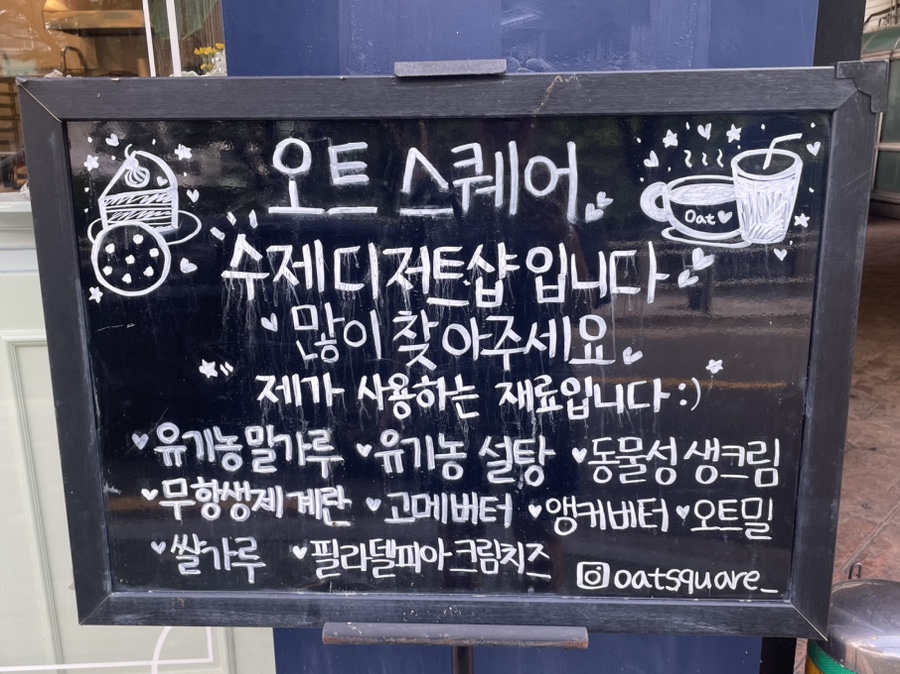 오트 스퀘어
Oat
수제디저트샵입니다
많이 찾아주세요
제가 사용하는 재료입니다 :)
유기농밀가루 유기농 설탕 동물성 생크림
무항생제 계란 고메버터 앵커버터 오트밀
쌀가루 필라델피아 크림치즈
oatsquare_